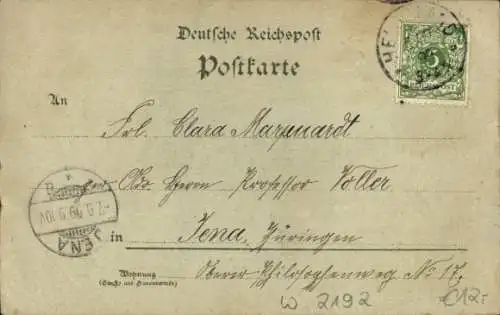 Deutsche Reichspost
Postkarte
An
Frl. Clara Marquardt
Adr. Herrn Professor Voller
in Jena, Thüringen
Wohnung
(Straße und Hausnummer)
Oberer Philosophenweg No 17.
JENA
W 2192
€12.-